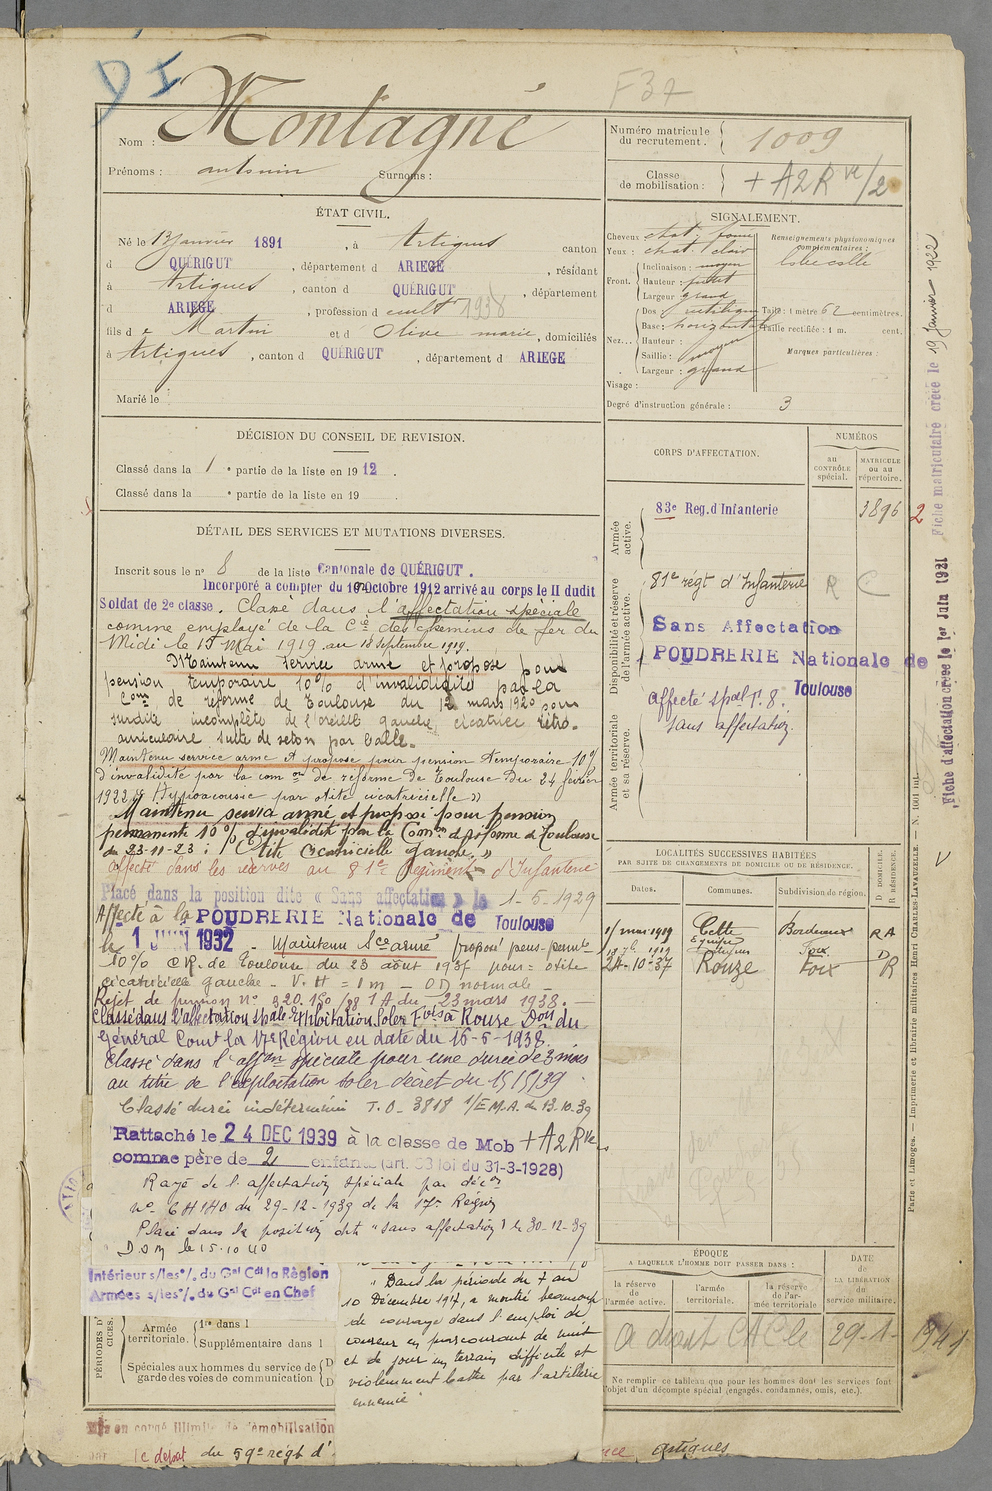 D I
F37
Nom : Montagné
Prénoms : antonin Surnoms :
Numéro matricule du recrutement. 1009
Classe de mobilisation : + A2R ve/2
ÉTAT CIVIL.
Né le 13 janvier 1891, à Artigues canton
d QUÉRIGUT, département d ARIEGE, résidant
à Artigues, canton d QUÉRIGUT, département
d ARIEGE, profession d cultr 1938
fils d e Martin et d Olive marie, domiciliés
à Artigues, canton d QUÉRIGUT, département d ARIEGE
Marié le
SIGNALEMENT.
Cheveux chat. foncé
Yeux : chat. clair
Front. Inclinaison : moyen
Hauteur : petit
Largeur grand
Nez... Dos : rectiligne
Base : horizontale
Hauteur :
Saillie : moyen
Largeur : grand
Visage :
Renseignements physionomiques complémentaires :
Taille : 1 mètre 62 centimètres.
Taille rectifiée : 1 m. cent.
Marques particulières :
Degré d'instruction générale : 3
DÉCISION DU CONSEIL DE REVISION.
Classé dans la 1 e partie de la liste en 1912.
Classé dans la e partie de la liste en 19 .
DÉTAIL DES SERVICES ET MUTATIONS DIVERSES.
Inscrit sous le n° 8 de la liste Cantonale de QUÉRIGUT.
Incorporé à compter du 10 Octobre 1912 arrivé au corps le II dudit
Soldat de 2e classe. Classé dans l'affectation spéciale
comme employé de la Cie des chemins de fer du
Midi le 15 Mai 1919 au 18 Septembre 1919.
Maintenu service armé et proposé pour
pension temporaire 10% d'invalidité par la
Com. de réforme de Toulouse du 12 mars 1920 pour
surdité incomplète de l'oreille gauche, cicatrice rétro-
auriculaire suite de séton par balle.
Maintenu service armé et proposé pour pension temporaire 10%
d'invalidité par la com on de réforme de Toulouse du 24 février
1922 " Hypoacousie par otite cicatricielle "
Maintenu service armé et proposé pour pension
permanente 10% d'invalidité par la Comon de réforme de Toulouse
du 23-11-23 : " Otite cicatricielle gauche. "
affecté dans les réserves au 81e Régiment d'Infanterie
Placé dans la position dite « Sans affectation » le 1-5-1929
Affecté à la POUDRERIE Nationale de Toulouse
le 1 JUIN 1932 - Maintenu Sce armé proposé pens. pernte
10% CR. de Toulouse du 23 août 1937 pour : otite
cicatricielle gauche - V.H = 1m - OD normale -
Rejet de pension n° 320.150/98 1A du 23 mars 1938.
Classé dans l'affectation spale Exploitation Soler Fois à Rouze Don du
Général Comt la 17e Région en date du 16-5-1938.
Classé dans l'affon spéciale pour une durée de 3 mois
au titre de l'exploitation Soler décret du 15/5/39.
Classé durée indéterminée T.O. 3818 1/E.M.A. du 13.10.39
Rattaché le 24 DEC 1939 à la classe de Mob + A2Rve
comme père de 2 enfants (art. 58 loi du 31-3-1928)
Rayé de l'affectation spéciale par décon
n° 6H140 du 29-12-1939 de la 17e Région
Placé dans la position dite "sans affectation" le 30-12-39
D.D.M le 15.10.40
Intérieur s/les°/. du Gal Cdt la Région
Armées s/les°/. du Gal Cdt en Chef
" Dans la période du 7 au
10 Décembre 1917, a montré beaucoup
de courage dans l'emploi de
coureur en parcourant de nuit
et de jour un terrain difficile et
violemment battu par l'artillerie
ennemie "
Armée territoriale. 1re dans l
Supplémentaire dans l
Spéciales aux hommes du service de
garde des voies de communication
Mis en congé illimité de démobilisation
par le dépôt du 59e régt d'
Artigues
CORPS D'AFFECTATION.
NUMÉROS
au CONTRÔLE spécial.
MATRICULE ou au répertoire.
Armée active.
83e Reg. d'Infanterie 3896 2
Disponibilité et réserve de l'armée active.
81e régt d'Infanterie R C
Sans Affectation
POUDRERIE Nationale de
Toulouse
Armée territoriale et sa réserve.
affecté spal T. 8.
sans affectation.
LOCALITÉS SUCCESSIVES HABITÉES
PAR SUITE DE CHANGEMENTS DE DOMICILE OU DE RÉSIDENCE.
Dates. Communes. Subdivision de région. D DOMICILE. R RÉSIDENCE.
1/ mai 1919 Cette Bordeaux RA
Foix D
24-10-37 Rouze Foix R
ÉPOQUE
A LAQUELLE L'HOMME DOIT PASSER DANS :
la réserve de l'armée active.
l'armée territoriale.
la réserve de l'armée territoriale
DATE de LA LIBÉRATION du service militaire.
a droit CAC le 29-1-1941
Ne remplir ce tableau que pour les hommes dont les services font
l'objet d'un décompte spécial (engagés, condamnés, omis, etc.).
Fiche matriculaire créée le 19 Janvier 1922
Fiche d'affectation créée le 1er Juin 1921
Paris et Limoges. — Imprimerie et librairie militaires Henri CHARLES-LAVAUZELLE. — N. 1001 int.